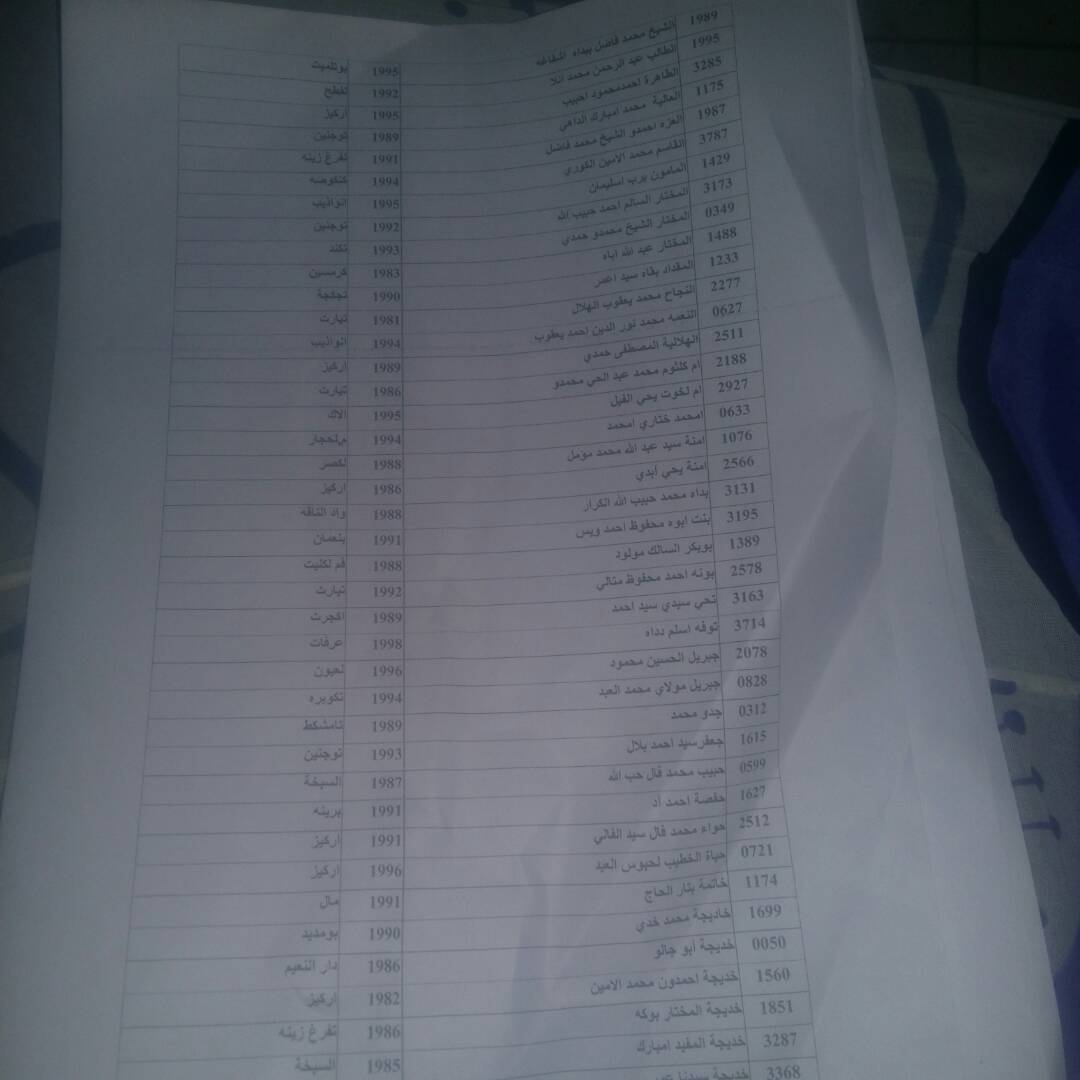 1989 الشيخ محمد فاضل بيداه الشفاغه 1995 بوتلميت
1995 الطالب عبد الرحمن محمد انلا 1992 لفطح
3285 الطاهرة احمدمحمود احبيب 1995 اركيز
1175 العالية محمد امبارك الداهي 1989 توجنين
1987 العزه احمدو الشيخ محمد فاضل 1991 تفرغ زينه
3787 القاسم محمد الامين الكوري 1994 كنكوصه
1429 المامون يرب اسليمان 1995 انواذيب
3173 المختار السالم احمد حبيب الله 1992 توجنين
0349 المختار الشيخ محمدو حمدي 1993 تكند
1488 المختار عبد الله اباه 1983 كرمسين
1233 المقداد بقاه سيد اعمر 1990 تجكجة
2277 النجاح محمد يعقوب الهلال 1981 تيارت
0627 النعمه محمد نور الدين احمد يعقوب 1994 انواذيب
2511 الهلالية المصطفى حمدي 1989 اركيز
2188 ام كلثوم محمد عبد الحي محمدو 1986 تيارت
2927 ام لخوت يحي الفيل 1995 الاك
0633 امحمد ختاري امحمد 1994 ملحجار
1076 امنة سيد عبد الله محمد مؤمل 1988 لكصر
2566 امنة يحي ابدي 1986 اركيز
3131 بداه محمد حبيب الله الكرار 1988 واد الناقة
3195 بنت ابوه محفوظ احمد ويس 1991 بنعمان
1389 بوبكر السالك مولود 1988 فم لكليت
2578 بونه احمد محفوظ متالي 1992 تيارت
3163 تحي سيدي سيد احمد 1989 اكجرت
3714 توفه اسلم دداه 1998 عرفات
2078 جبريل الحسين محمود 1996 لعيون
0828 جبريل مولاي محمد العبد 1994 تكويره
0312 جدو محمد 1989 تامشكط
1615 جعفرسيد احمد بلال 1993 توجنين
0599 حبيب محمد فال حب الله 1987 السبخة
1627 حفصة احمد أد 1991 برينه
2512 حواء محمد فال سيد الفالي 1991 اركيز
0721 حياة الخطيب لحبوس العبد 1996 اركيز
1174 خاتمة بتار الحاج 1991 مال
1699 خاديجة محمد خدي 1990 بومديد
0050 خديجة أبو جالو 1986 دار النعيم
1560 خديجة احمدون محمد الامين 1982 اركيز
1851 خديجة المختار بوكه 1986 تفرغ زينه
3287 خديجة المفيد امبارك 1985 السبخة
3368 خديجة